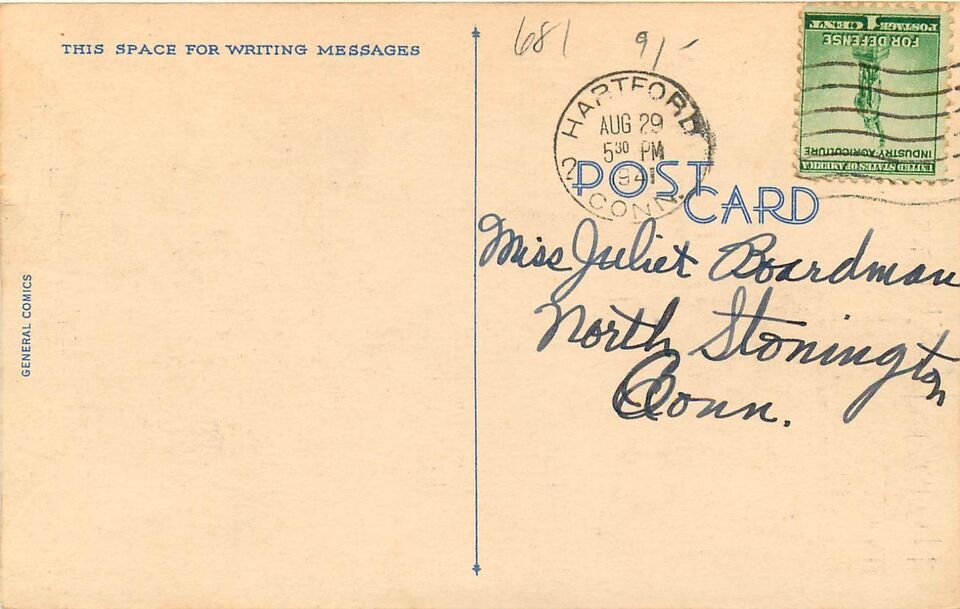 THIS SPACE FOR WRITING MESSAGES
681
9/-
HARTFORD
AUG 29
5 30 PM
1941
2 CONN.
1 CENT
POSTAGE
FOR DEFENSE
INDUSTRY-AGRICULTURE
UNITED STATES OF AMERICA
POST
CARD
Miss Juliet Boardman
North Stonington
Conn.
GENERAL COMICS